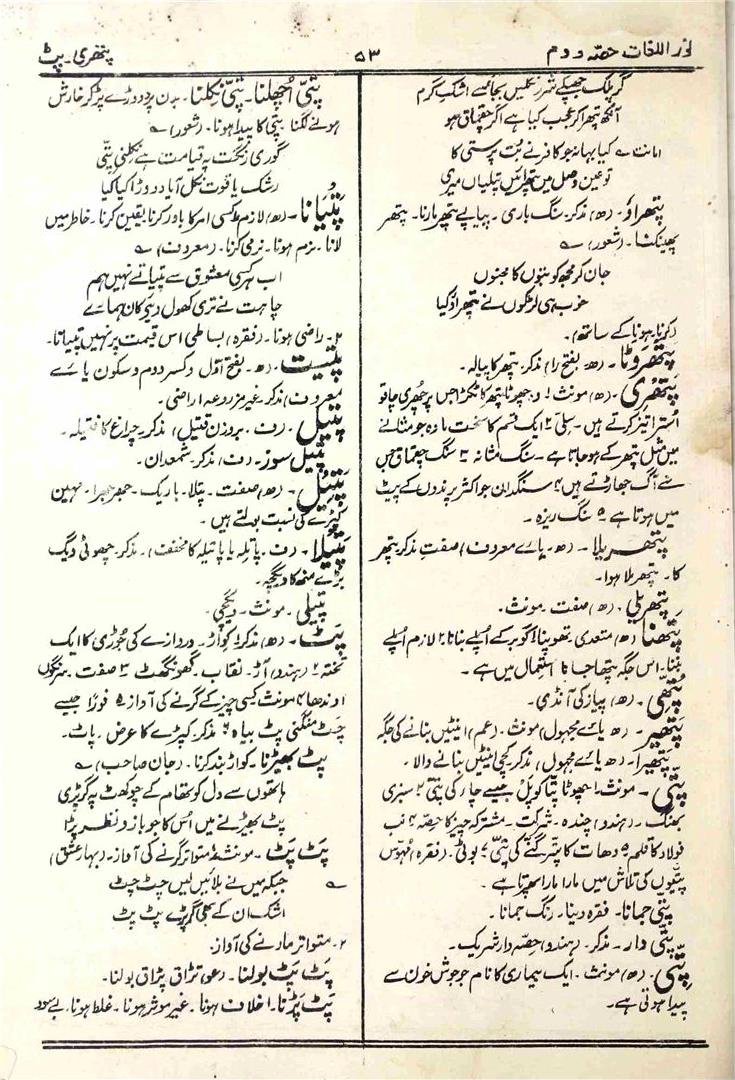 نور اللغات حصہ دوم
۵۳
پتھری۔ پٹ
گر پلک جھپکے شرر نکلیں بجائے اشک گرم
آنکھ پتھرا کر عجب کیا ہے اگر چقماق ہو
امانت ؎ کیا بہانہ جو کافر نے بت پرستی کا
تو عین وصل میں پتھرائیں پتلیاں میری
پتھراؤ۔ (ھ) مذکر۔ سنگ باری۔ پیاپے پتھر مارنا۔ پتھر
پھینکنا۔ (شعور) ؎
جان کر مجھ کو بتوں کا مجنوں
خوب ہی لڑکوں نے پتھراؤ کیا
(کرنا، ہونا کے ساتھ)۔
پتھروٹا۔ (ھ۔ بفتح را) مذکر۔ پتھر کا پیالہ۔
پتھری۔ (ھ) مونث ۱۔ وہ چھوٹا پتھر کا ٹکڑا جس پر چھری چاقو
استرا تیز کرتے ہیں۔ سلی ۲ ایک قسم کا سخت مادہ جو مثانے
میں مثل پتھر کے ہو جاتا ہے۔ سنگ مثانہ ۳ سنگ چقماق جس
سے آگ جھاڑتے ہیں ۴ سنگدان جو اکثر پرندوں کے پیٹ
میں ہوتا ہے ۵ سنگ ریزہ۔
پتھریلا۔ (ھ۔ یائے معروف) صفت مذکر پتھر
کا۔ پتھر ملا ہوا۔
پتھریلی۔ (ھ) صفت۔ مونث۔
پتھنا (ھ) متعدی۔ تھوپنا ۱ گوبر کے اُپلے بنانا ۲ لازم اُپلے
بننا۔ اس جگہ پتھا جانا استعمال میں ہے۔
پتھی۔ (ھ) پیاز کی آنڈی۔
پتھیر۔ (ھ یائے مجہول) مونث۔ (عم) اینٹیں بنانے کی جگہ
پتھیرا۔ (ھ یائے مجہول) مذکر۔ کچی اینٹیں بنانے والا۔
پتی۔ مونث ۱ چھوٹا پتا کونپل جیسے چار کی پتی ۲ سبزی
بھنگ۔ (ہندو) چندہ۔ شرکت۔ مشترکہ چیز کا حصہ ۴ نب
فولاد کا قلم ۵ دھات کا پتر گنے کی پتی ۶ بوٹی۔ (فقرہ) مہوس
پتیوں کی تلاش میں مارا مارا پھرتا ہے۔
پتی جمانا۔ فقرہ دینا۔ رنگ جمانا۔
پتی دار۔ مذکر۔ (ہندو) حصہ دار شریک۔
پتی۔ (ھ) مونث۔ ایک بیماری کا نام جو جوش خون سے
پیدا ہوتی ہے۔
پتی اُچھلنا۔ پتی نکلنا۔ بدن پر ددوڑے پڑ کر خارش
ہونے لگنا۔ پتی کا پیدا ہونا۔ (شعور) ؎
گوری رنگت پہ قیامت ہے نکلنی پتی
رشک یاقوت نکل آیا ددوڑا کیا کیا
پتیانا۔ (ھ) لازم ۱ کسی امر کا باور کرنا یقین کرنا۔ خاطر میں
لانا۔ نرم ہونا۔ نرمی کرنا۔ (معروف) ؎
اب ہر کسی معشوق سے پتیاتے نہیں ہم
چاہت نے تری کھول دیے کان ہمارے
۲۔ راضی ہونا۔ (فقرہ) بساطی اس قیمت پر نہیں پتیاتا۔
پتیت۔ (ھ۔ بفتح اول و کسر دوم و سکون یائے
معروف) مذکر۔ غیر مزروعہ اراضی۔
پتیل۔ (ف۔ بروزن فتیل) مذکر۔ چراغ کا فتیلہ۔
پتیل سوز۔ (ف) مذکر۔ شمعدان۔
پتیل۔ (ھ) صفت۔ پتلا۔ باریک۔ جھرجھرا۔ مہین
کپڑے کی نسبت بولتے ہیں۔
پتیلا۔ (ف۔ پاتلہ یا پاتیلہ کا مخفف)۔ مذکر۔ چھوٹی دیگ
بڑے منہ کا دیگچہ۔
پتیلی۔ مونث۔ دیگچی۔
پٹ۔ (ھ) مذکر ۱ کواڑ۔ دروازے کی جوڑی کا ایک
تختہ ۲ (ہندو) آڑ۔ نقاب۔ گھونگھٹ ۳ صفت۔ سرنگوں
اوندھا ۴ مونث کسی چیز کے گرنے کی آواز ۵ فوراً جیسے
چٹ منگنی پٹ بیاہ ۶ مذکر۔ کپڑے کا عرض۔ پاٹ۔
پٹ بھیڑنا۔ کواڑ بند کرنا۔ (جان صاحب) ؎
ہاتھوں سے دل کو تھام کے چوکھٹ پہ گر پڑی
پٹ بھیڑنے میں اُس کا جو بازو نظر پڑا
پٹ پٹ۔ مونث ۱ متواتر گرنے کی آواز۔ (بہار عشق)
؎ جبکہ میں نے بلائیں لیں چٹ چٹ
اشک ان کے بھی گر پڑے پٹ پٹ
۲۔ متواتر مارنے کی آواز۔
پٹ پٹ بولنا۔ (عو) تڑاق پڑاق بولنا۔
پٹ پڑنا۔ ۱ خلاف ہونا۔ غیر موثر ہونا۔ غلط ہونا۔ بے سود